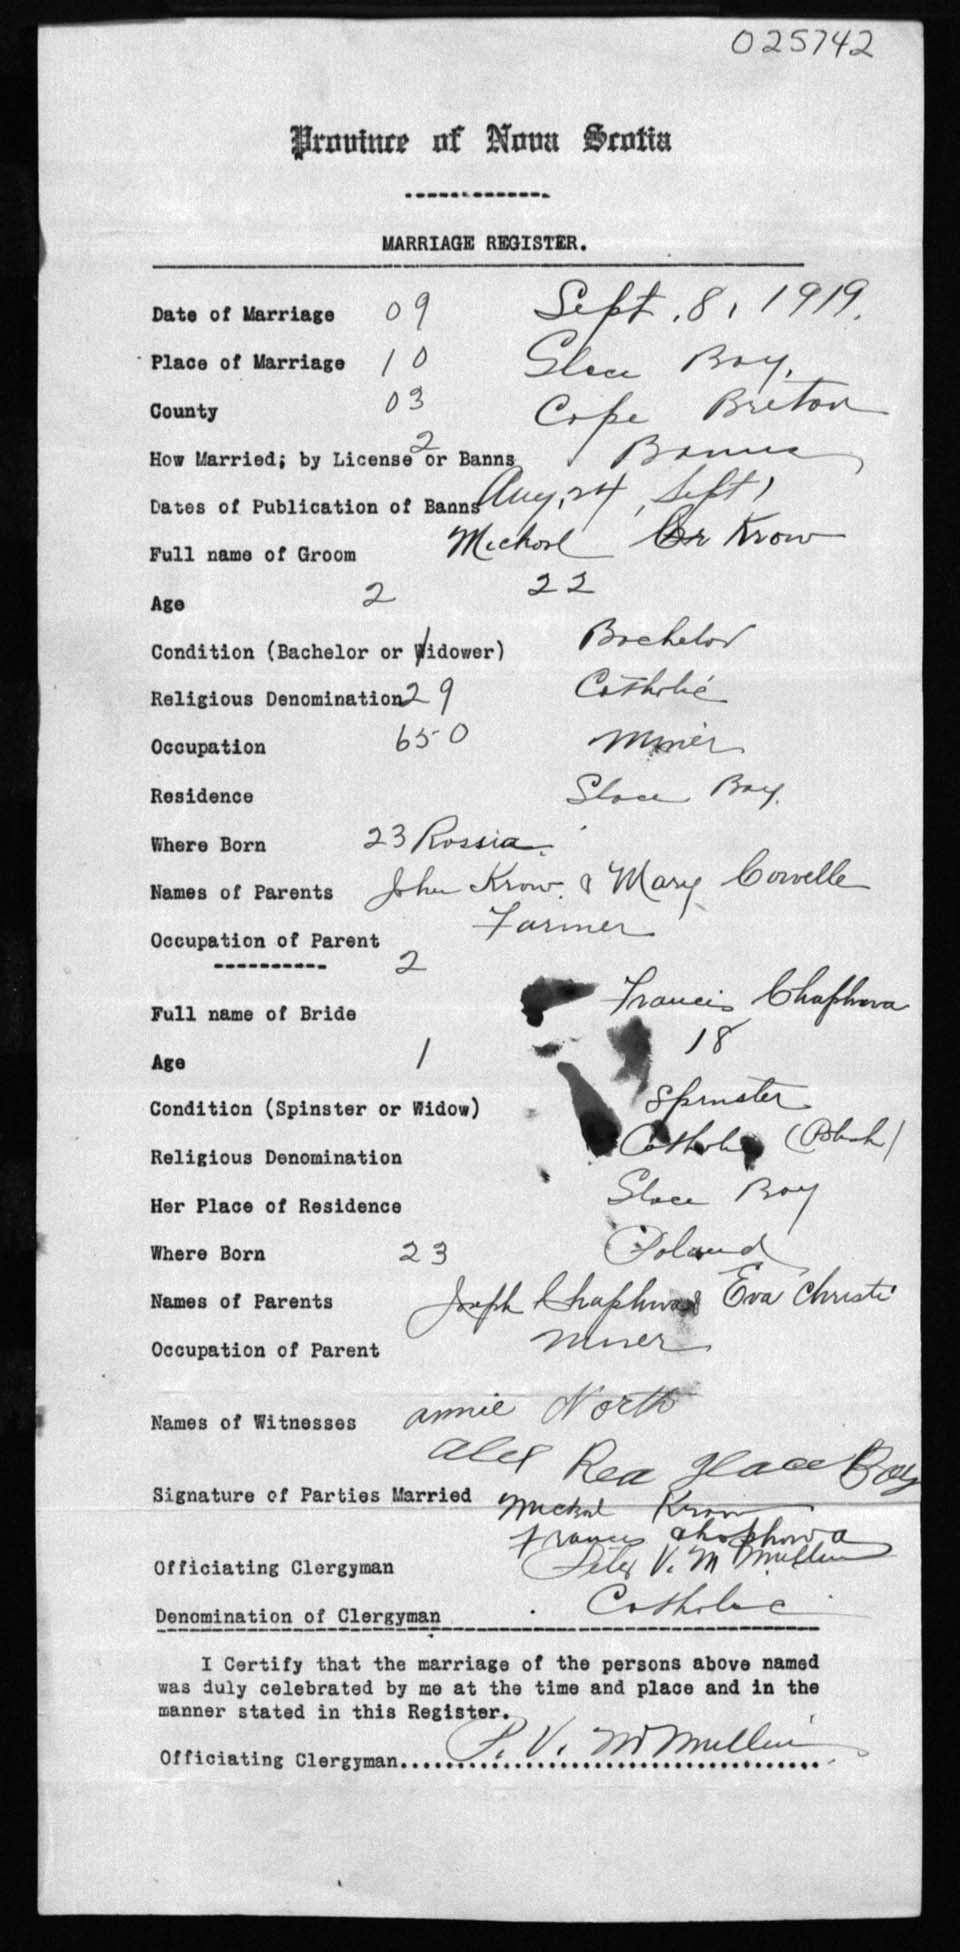 025742
Province of Nova Scotia
MARRIAGE REGISTER.
Date of Marriage 09 Sept. 8, 1919.
Place of Marriage 10 Glace Bay.
County 03 Cape Breton
How Married; by License or Banns 2 Banns
Dates of Publication of Banns Aug. 24, Sept 1
Full name of Groom Michael Krow
Age 2 22
Condition (Bachelor or Widower) Bachelor
Religious Denomination 29 Catholic
Occupation 650 Miner
Residence Glace Bay.
Where Born 23 Rossia.
Names of Parents John Krow & Mary Cowelle
Occupation of Parent Farmer
2
Full name of Bride Francis Chaphowa
Age 1 18
Condition (Spinster or Widow) Spinster
Religious Denomination Catholic (Polish)
Her Place of Residence Glace Bay
Where Born 23 Poland
Names of Parents Joseph Chaphowa & Eva Christi
Occupation of Parent Miner
Names of Witnesses Annie North
Alex Rea Glace Bay
Signature of Parties Married Michael Krow
Francis Chophowa
Officiating Clergyman Peter V. McMullin
Denomination of Clergyman Catholic
I Certify that the marriage of the persons above named
was duly celebrated by me at the time and place and in the
manner stated in this Register.
Officiating Clergyman........ P. V. McMullin